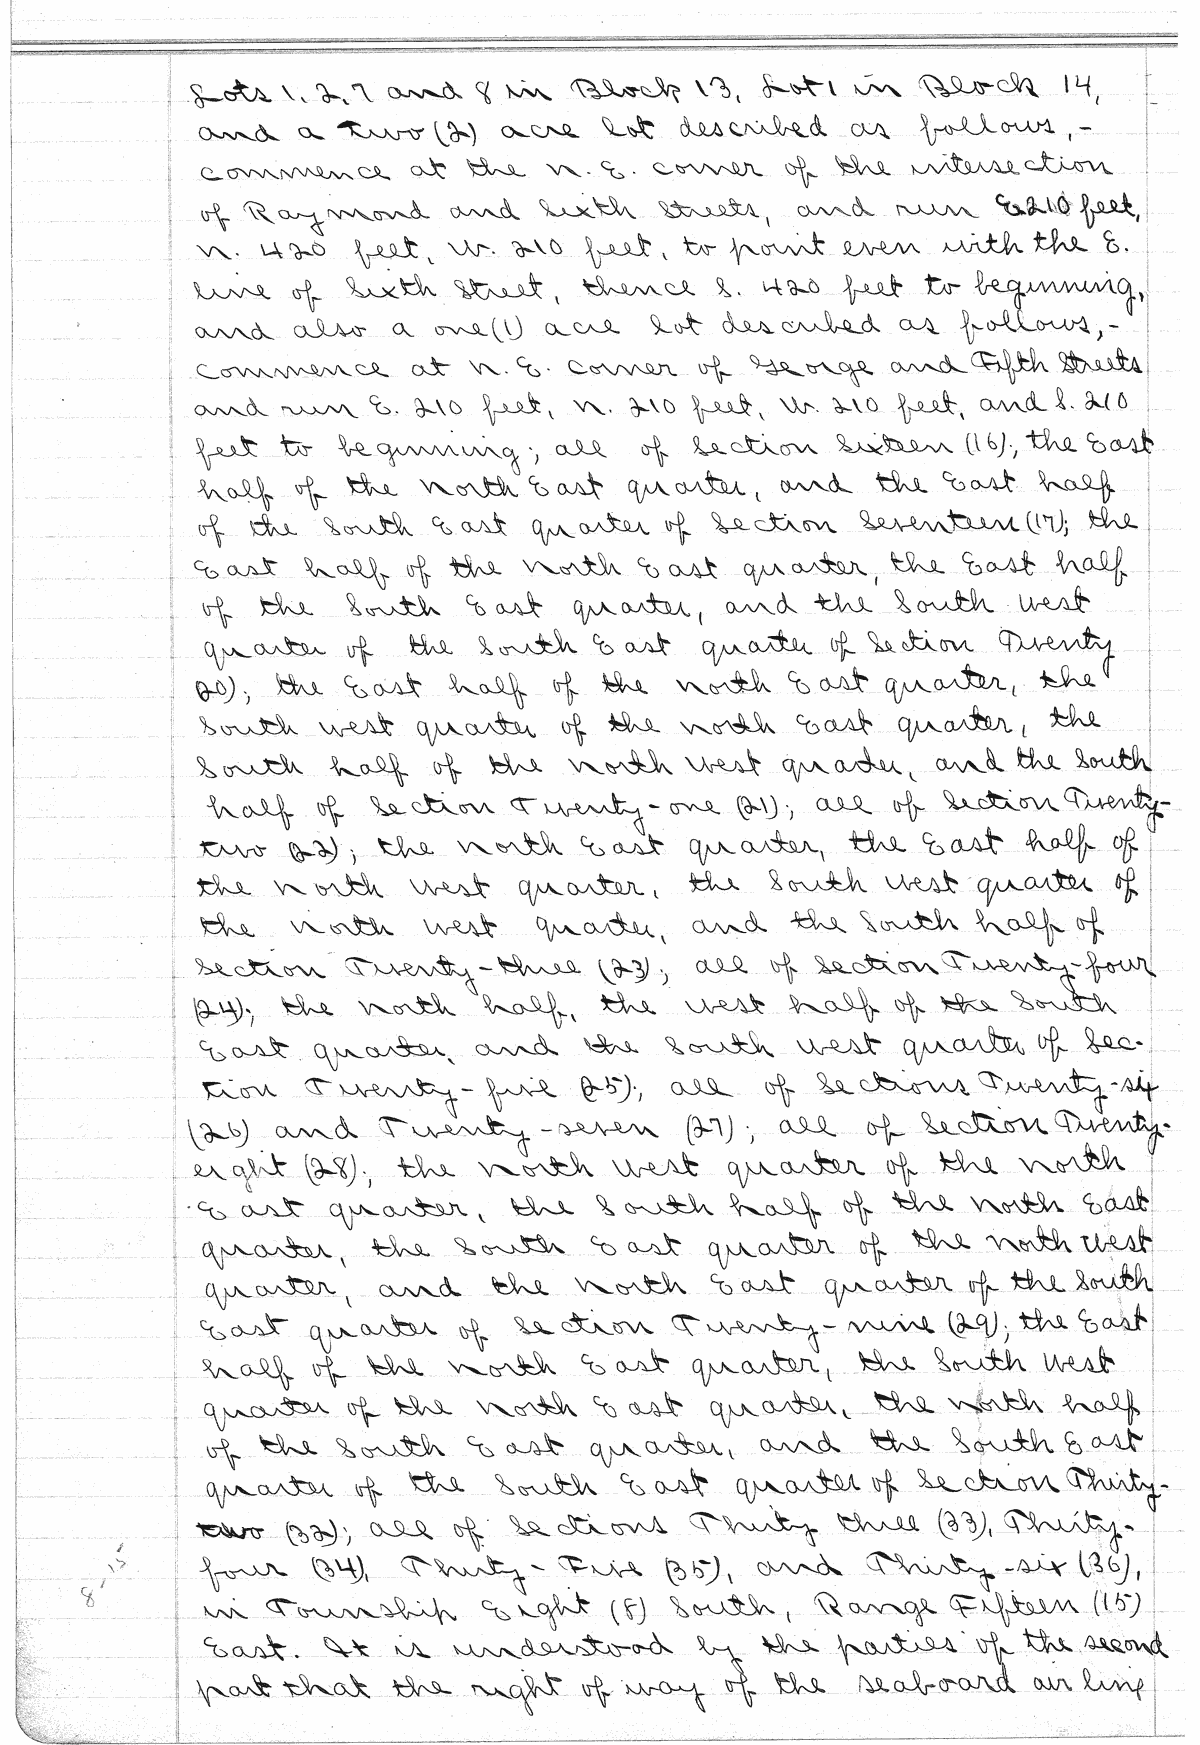 Lots 1, 2, 7 and 8 in Block 13, Lot 1 in Block 14,
and a two (2) acre lot described as follows,-
commence at the N. E. corner of the intersection
of Raymond and Sixth Streets, and run E. 210 feet,
N. 420 feet, W. 210 feet, to point even with the E.
line of Sixth Street, thence S. 420 feet to beginning,
and also a one (1) acre lot described as follows,-
commence at N. E. corner of George and Fifth Streets
and run E. 210 feet, N. 210 feet, W. 210 feet, and S. 210
feet to beginning; all of Section Sixteen (16); the East
half of the North East quarter, and the East half
of the South East quarter of Section Seventeen (17); the
East half of the North East quarter, the East half
of the South East quarter, and the South West
quarter of the South East quarter of Section Twenty
(20); the East half of the North East quarter, the
South West quarter of the North East quarter, the
South half of the North West quarter, and the South
half of Section Twenty-one (21); all of Section Twenty-
two (22); the North East quarter, the East half of
the North West quarter, the South West quarter of
the North West quarter, and the South half of
Section Twenty-three (23); all of Section Twenty-four
(24); the North half, the West half of the South
East quarter, and the South West quarter of Sec-
tion Twenty-five (25); all of Sections Twenty-six
(26) and Twenty-seven (27); all of Section Twenty-
eight (28); the North West quarter of the North
East quarter, the South half of the North East
quarter, the South East quarter of the North West
quarter, and the North East quarter of the South
East quarter of Section Twenty-nine (29); the East
half of the North East quarter, the South West
quarter of the North East quarter, the North half
of the South East quarter, and the South East
quarter of the South East quarter of Section Thirty-
two (32); all of Sections Thirty three (33), Thirty-
four (34), Thirty-Five (35), and Thirty-six (36),
in Township Eight (8) South, Range Fifteen (15)
East. It is understood by the parties of the second
part that the right of way of the seaboard air line
8-15